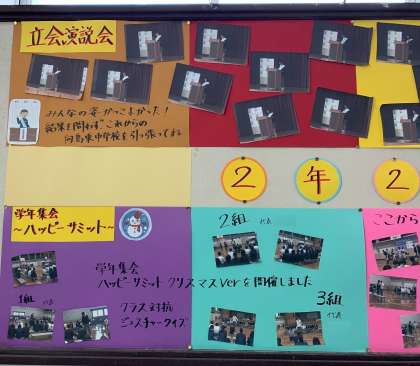 立会演説会
みんなの姿かっこよかった!
結果を問わず これからの
向島東中学校を引っ張ってね
2 年 2
学年集会
～ハッピーサミット～
学年集会
ハッピーサミット クリスマスVerを開催しました
1組 代表
クラス対抗
ジェスチャークイズ
2組 代表
3組
代表
ここから